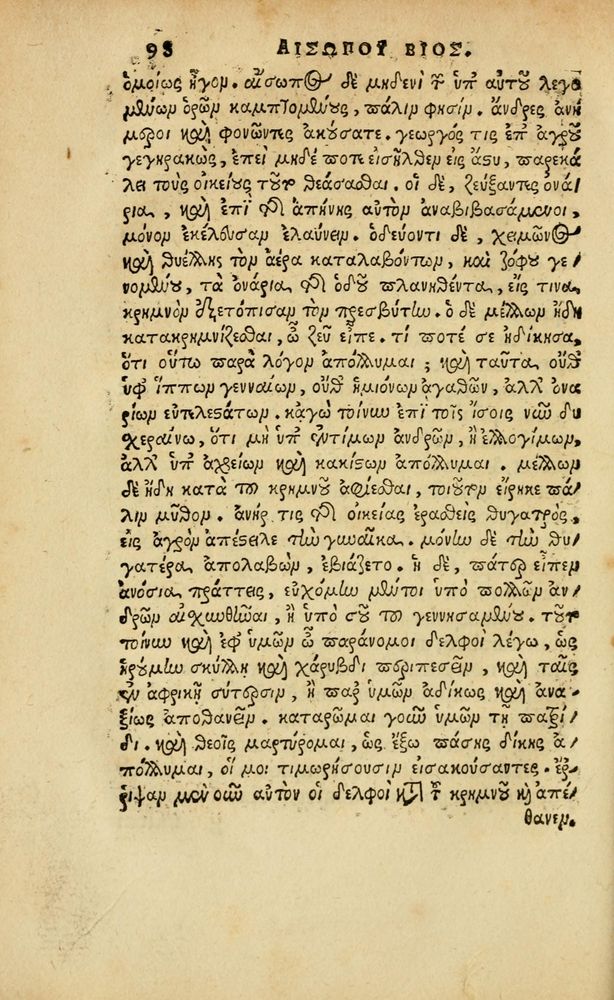 98 ΑΙΣΩΠΟΥ ΒΙΟΣ.
ὁμοίως ἦγον. αἴσωπος δὲ μηδενὶ τῶν ὑπ' αὐτοῦ λεγο
μένων ὁρῶν καμπτομένους, πάλιν φησίν. ἄνδρες ἀνή
μεροι καὶ φονῶντες ἀκούσατε. γεωργός τις ἐπ' ἀγροῦ
γεγηρακὼς, ἐπεὶ μηδέ ποτε εἰσῆλθεν εἰς ἄστυ, παρεκά
λει τοὺς οἰκείους τοῦτο θεάσασθαι. οἱ δὲ, ζεύξαντες ὀνά
ρια, καὶ ἐπὶ τῆς ἀπήνης αὐτὸν ἀναβιβασάμενοι,
μόνον ἐκέλευσαν ἐλαύνειν. ὁδεύοντι δὲ, χειμῶνος
καὶ θυέλλης τὸν ἀέρα καταλαβόντων, καὶ ζόφου γε
νομένου, τὰ ὀνάρια, τῆς ὁδοῦ πλανηθέντα, εἴς τινα
κρημνὸν ἐξετόπισαν τὸν πρεσβύτην. ὁ δὲ μέλλων ἤδη
κατακρημνίζεσθαι, ὦ ζεῦ εἶπε. τί ποτέ σε ἠδίκησα,
ὅτι οὕτω παρὰ λόγον ἀπόλλυμαι; καὶ ταῦτα, οὔθ'
ὑφ' ἵππων γενναίων, οὔθ' ἡμιόνων ἀγαθῶν, ἀλλ' ὀνα
ρίων εὐτελεστάτων. κἀγὼ τοίνυν ἐπὶ τοῖς ἴσοις νῦν δυ
χεραίνω, ὅτι μὴ ὑπ' ἐντίμων ἀνδρῶν, ἢ ἐλλογίμων,
ἀλλ' ὑπ' ἀχρείων καὶ κακίστων ἀπόλλυμαι. μέλλων
δὲ ἤδη κατὰ τοῦ κρημνοῦ ἀφίεσθαι, τοιοῦτον εἴρηκε πά
λιν μῦθον. ἀνήρ τις τῆς οἰκείας ἐρασθεὶς θυγατρός,
εἰς ἀγρὸν ἀπέστειλε τὴν γυναῖκα. μόνην δὲ τὴν θυ
γατέρα ἀπολαβὼν, ἐβιάζετο. ἡ δὲ, πάτερ εἶπεν
ἀνόσια πράττεις, εὐχόμην μέντοι ὑπὸ πολλῶν ἀν
δρῶν αἰσχυνθῆναι, ἢ ὑπὸ σοῦ τοῦ γεννησαμένου. τοῦτο
τοίνυν καὶ ἐφ' ὑμῶν ὦ παράνομοι δελφοὶ λέγω, ὡς
ᾑρούμην σκύλλῃ καὶ χάρυβδι περιπεσεῖν, καὶ ταῖς
ἐν ἀφρικῇ σύρτεσιν, ἢ παρ' ὑμῶν ἀδίκως καὶ ἀνα
ξίως ἀποθανεῖν. καταρῶμαι γοῦν ὑμῶν τῇ πατρί
δι. καὶ θεοῖς μαρτύρομαι, ὡς ἔξω πάσης δίκης ἀ
πόλλυμαι, οἵ μοι τιμωρήσουσιν εἰσακούσαντες. ἔρ
ριψαν μὲν οὖν αὐτὸν οἱ δελφοὶ κατὰ τοῦ κρημνοῦ κὶ ἀπέ
θανεν.